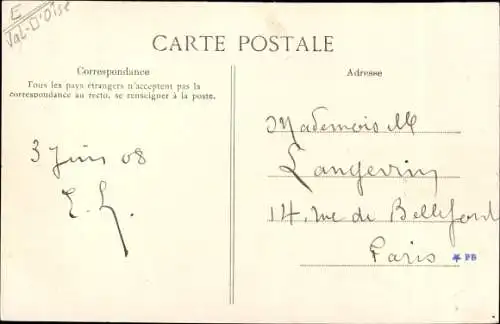 E
Val-D'Oise
CARTE POSTALE
Correspondance
Tous les pays étrangers n'acceptent pas la
correspondance au recto, se renseigner à la poste.
3 Juin 08
Adresse
Mademoiselle
Langevin
14, rue de Bellefond
Paris
PB